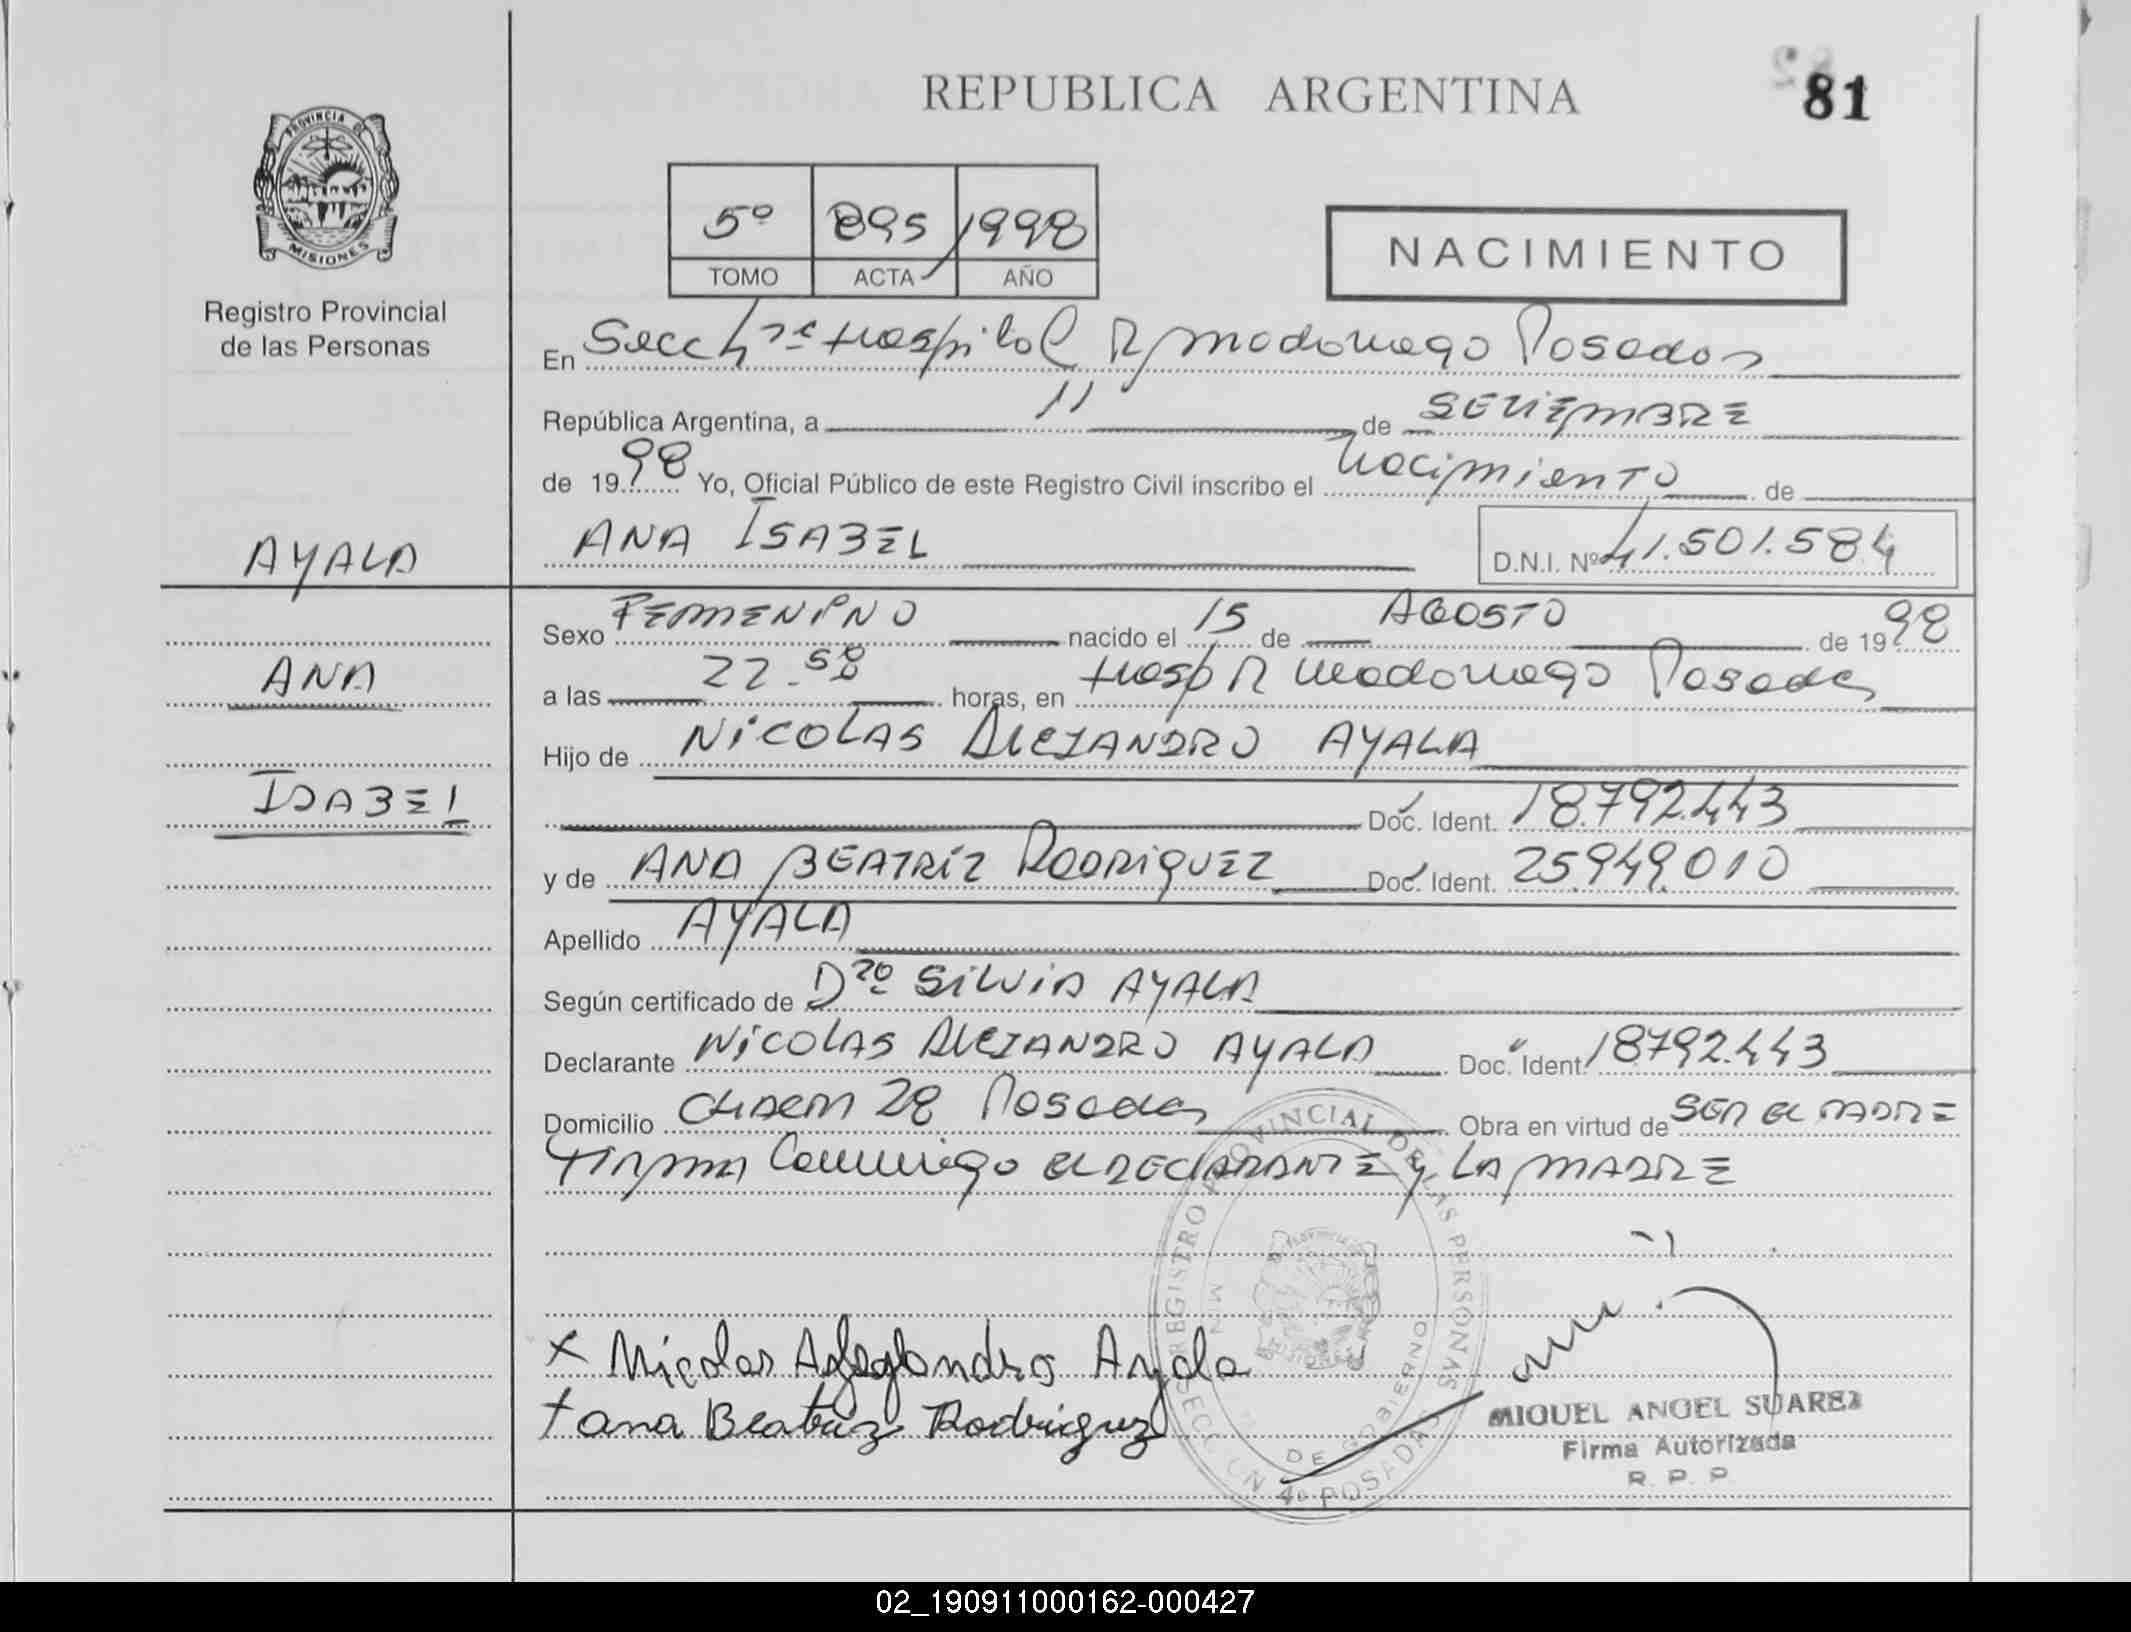 REPUBLICA ARGENTINA
81
PROVINCIA DE
MISIONES
Registro Provincial
de las Personas
5º 895 1998
TOMO ACTA AÑO
NACIMIENTO
En Secc 4ta Hospital R Madariaga Posadas
República Argentina, a 11 de SETIEMBRE
de 1998 Yo, Oficial Público de este Registro Civil inscribo el nacimiento de
AYALA
ANA ISABEL D.N.I. Nº 41.501.584
Sexo FEMENINO nacido el 15 de AGOSTO de 1998
ANA
a las 22.58 horas, en Hosp R Madariaga Posadas
Hijo de NICOLAS ALEJANDRO AYALA
ISABEL
Doc. Ident. 18.792.443
y de ANA BEATRIZ RODRIGUEZ Doc. Ident. 25.949.010
Apellido AYALA
Según certificado de Dra SILVIA AYALA
Declarante NICOLAS ALEJANDRO AYALA Doc. Ident. 18792.443
Domicilio 28 Posadas Obra en virtud de SER EL PADRE
FIRMAN Conmigo EL DECLARANTE y LA MADRE
REGISTRO PROVINCIAL DE LAS PERSONAS
DE GOBIERNO
SECCION 4º POSADAS
x Nicolas Alejandro Ayala
+ ana Beatriz Rodriguez
MIGUEL ANGEL SUAREZ
Firma Autorizada
R. P. P.
02_190911000162-000427